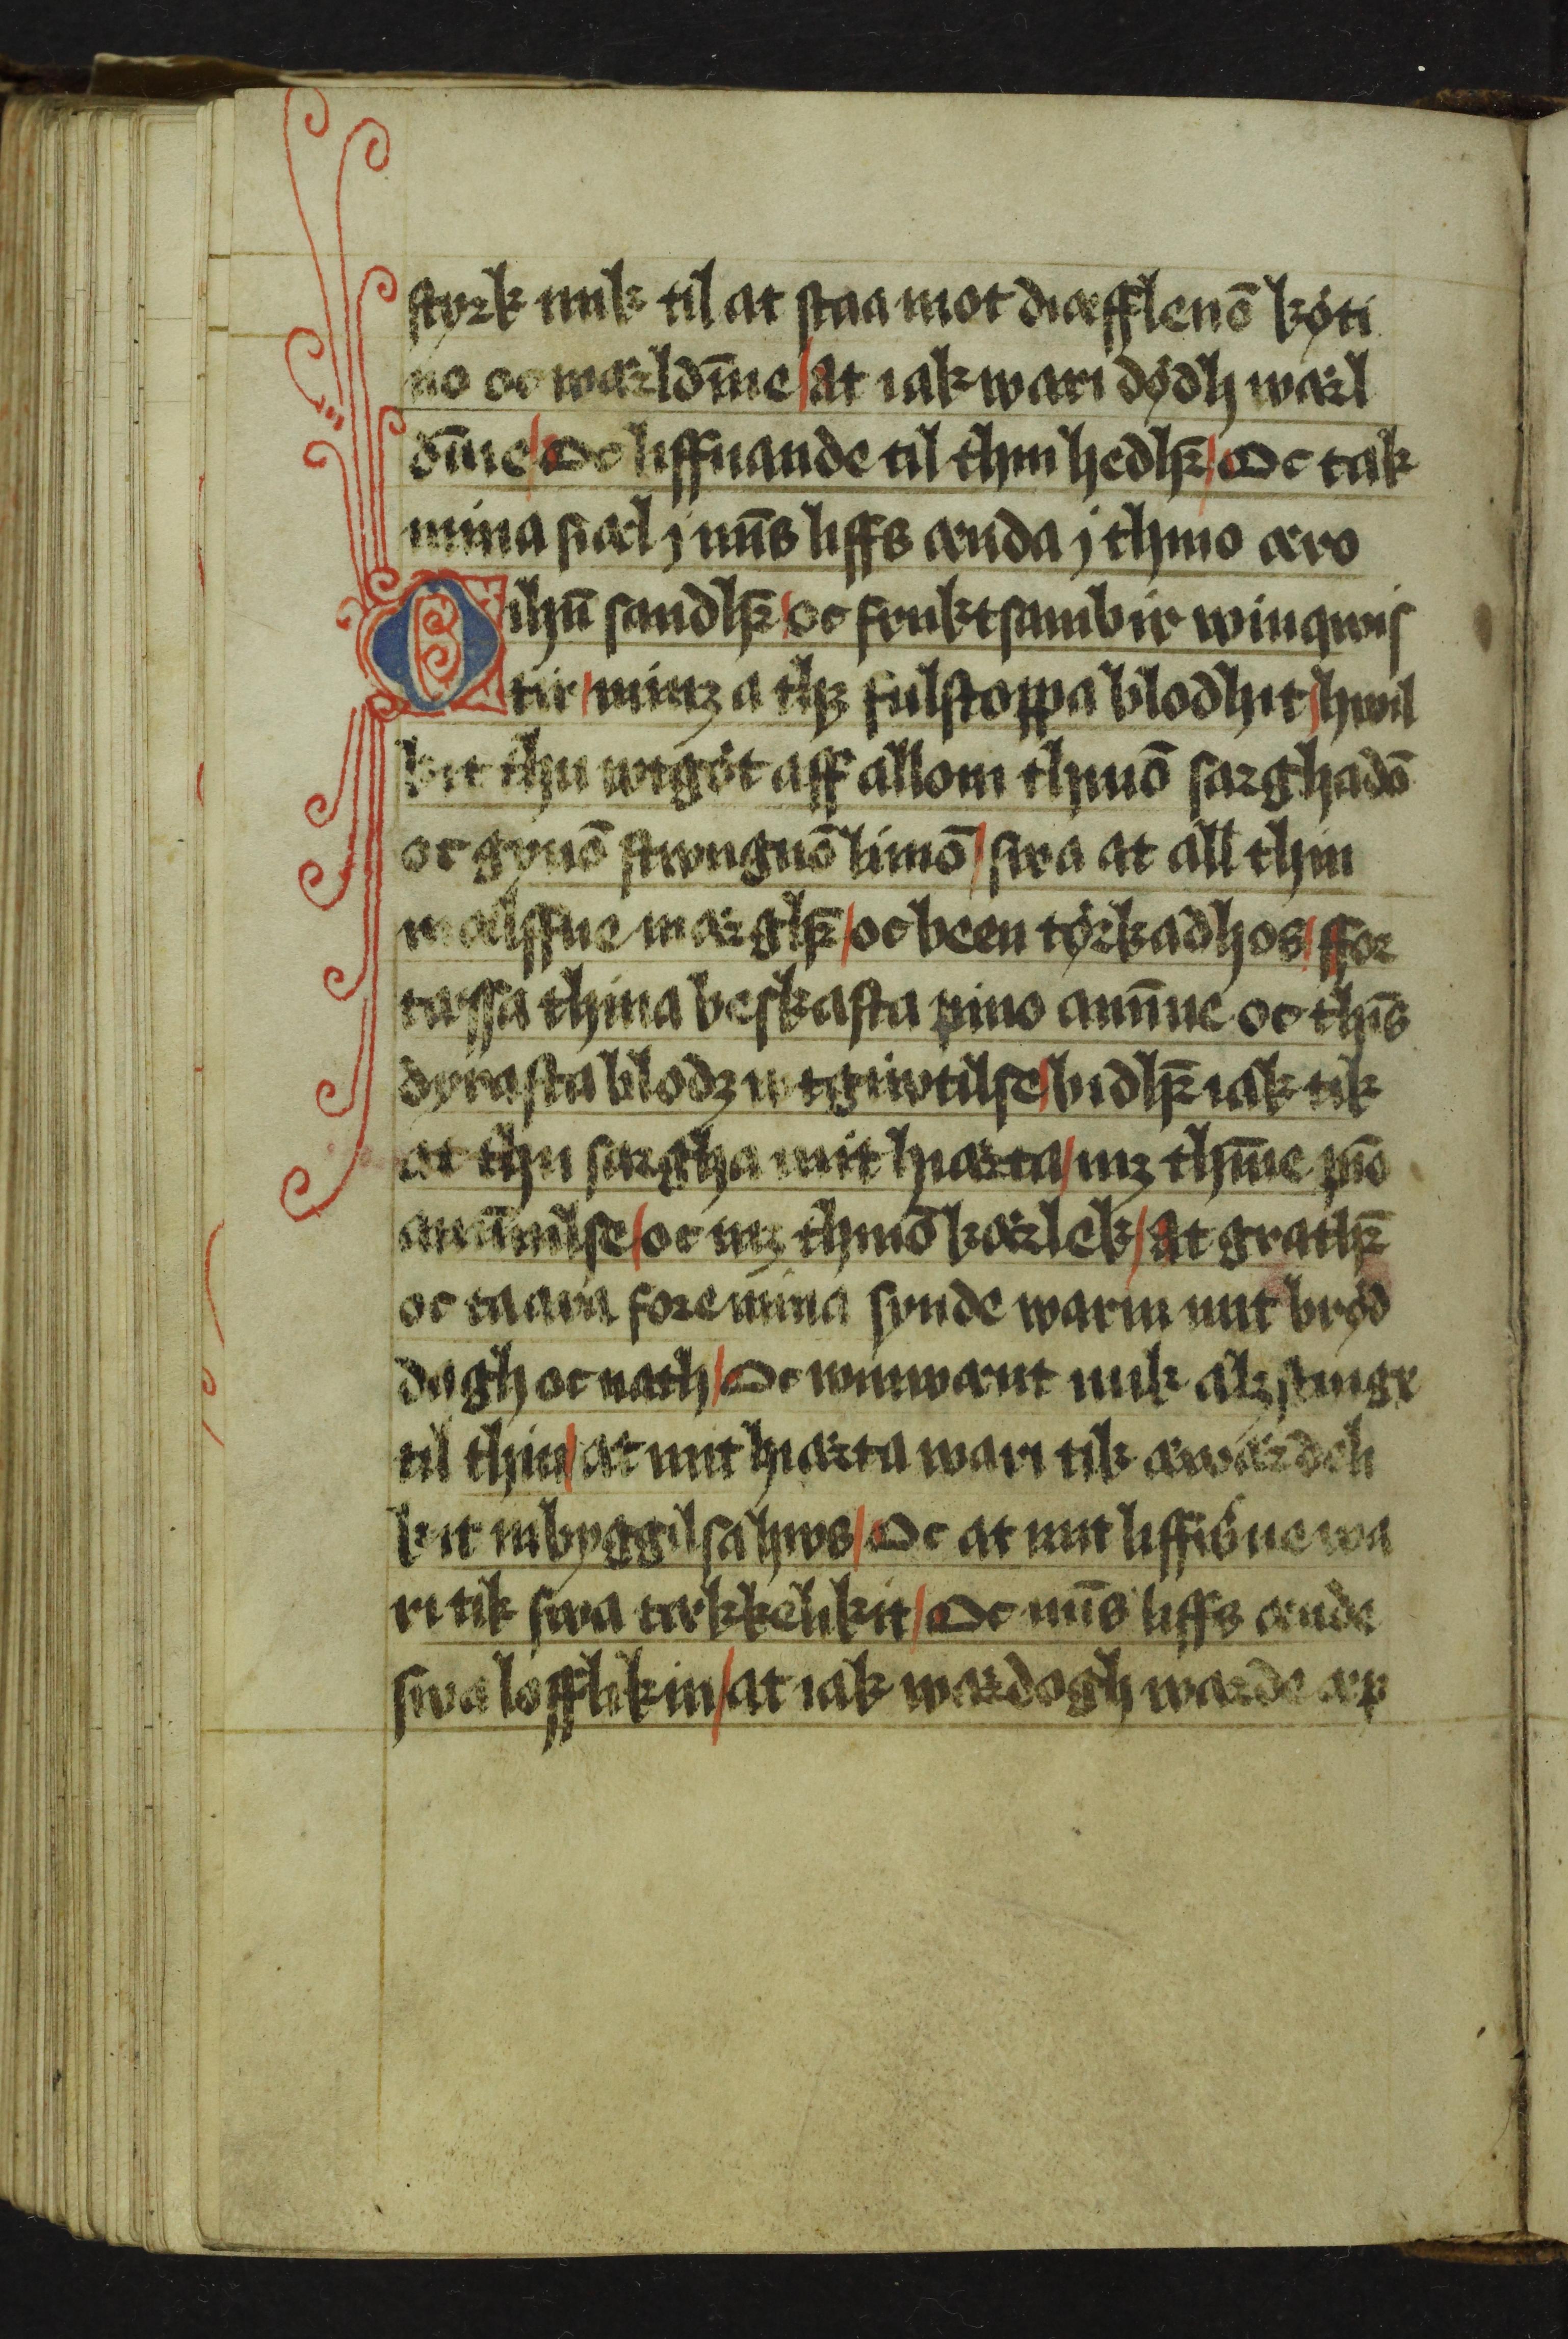 styrk mik til at staa mot diæfflenō köti
no oc wærldīne / at iak wari dödh wærl
dīne / Oc liffuande til thin hedhꝝ / Oc tak
mina siæl j mīs liffs ænda j thino æro
O ihū sandhꝝ / oc fruktsambir winqwis
tir / minz a thz fulstoppa blodhit / hwil
kit thu wtgöt aff allom thinō sarghadō
oc gynō stwngnō limō / swa at all thin
mælffue mærghꝝ / oc been törkadhos / ffor
tassa thina beskasta pino amīne oc thīs
dyrasta blodz wtgiwtilse / bidhꝝ iak tik
at thu sargha mit hiærta / mz thīne pīo
amīnilse / oc mz thinō kærlek / at grathꝝ
oc taara fore mina synde warin mit bröd
dagh oc nath / Oc winwænt mik alzstingx
til thin / at mit hiærta wari tik æwærdeli
kit inbyggilsa hws / Oc at mit liffiðne wa
ri tik swa tækkelikit / Oc mīs liffs ænde
swa lofflikin / at iak wærdogh warde æp